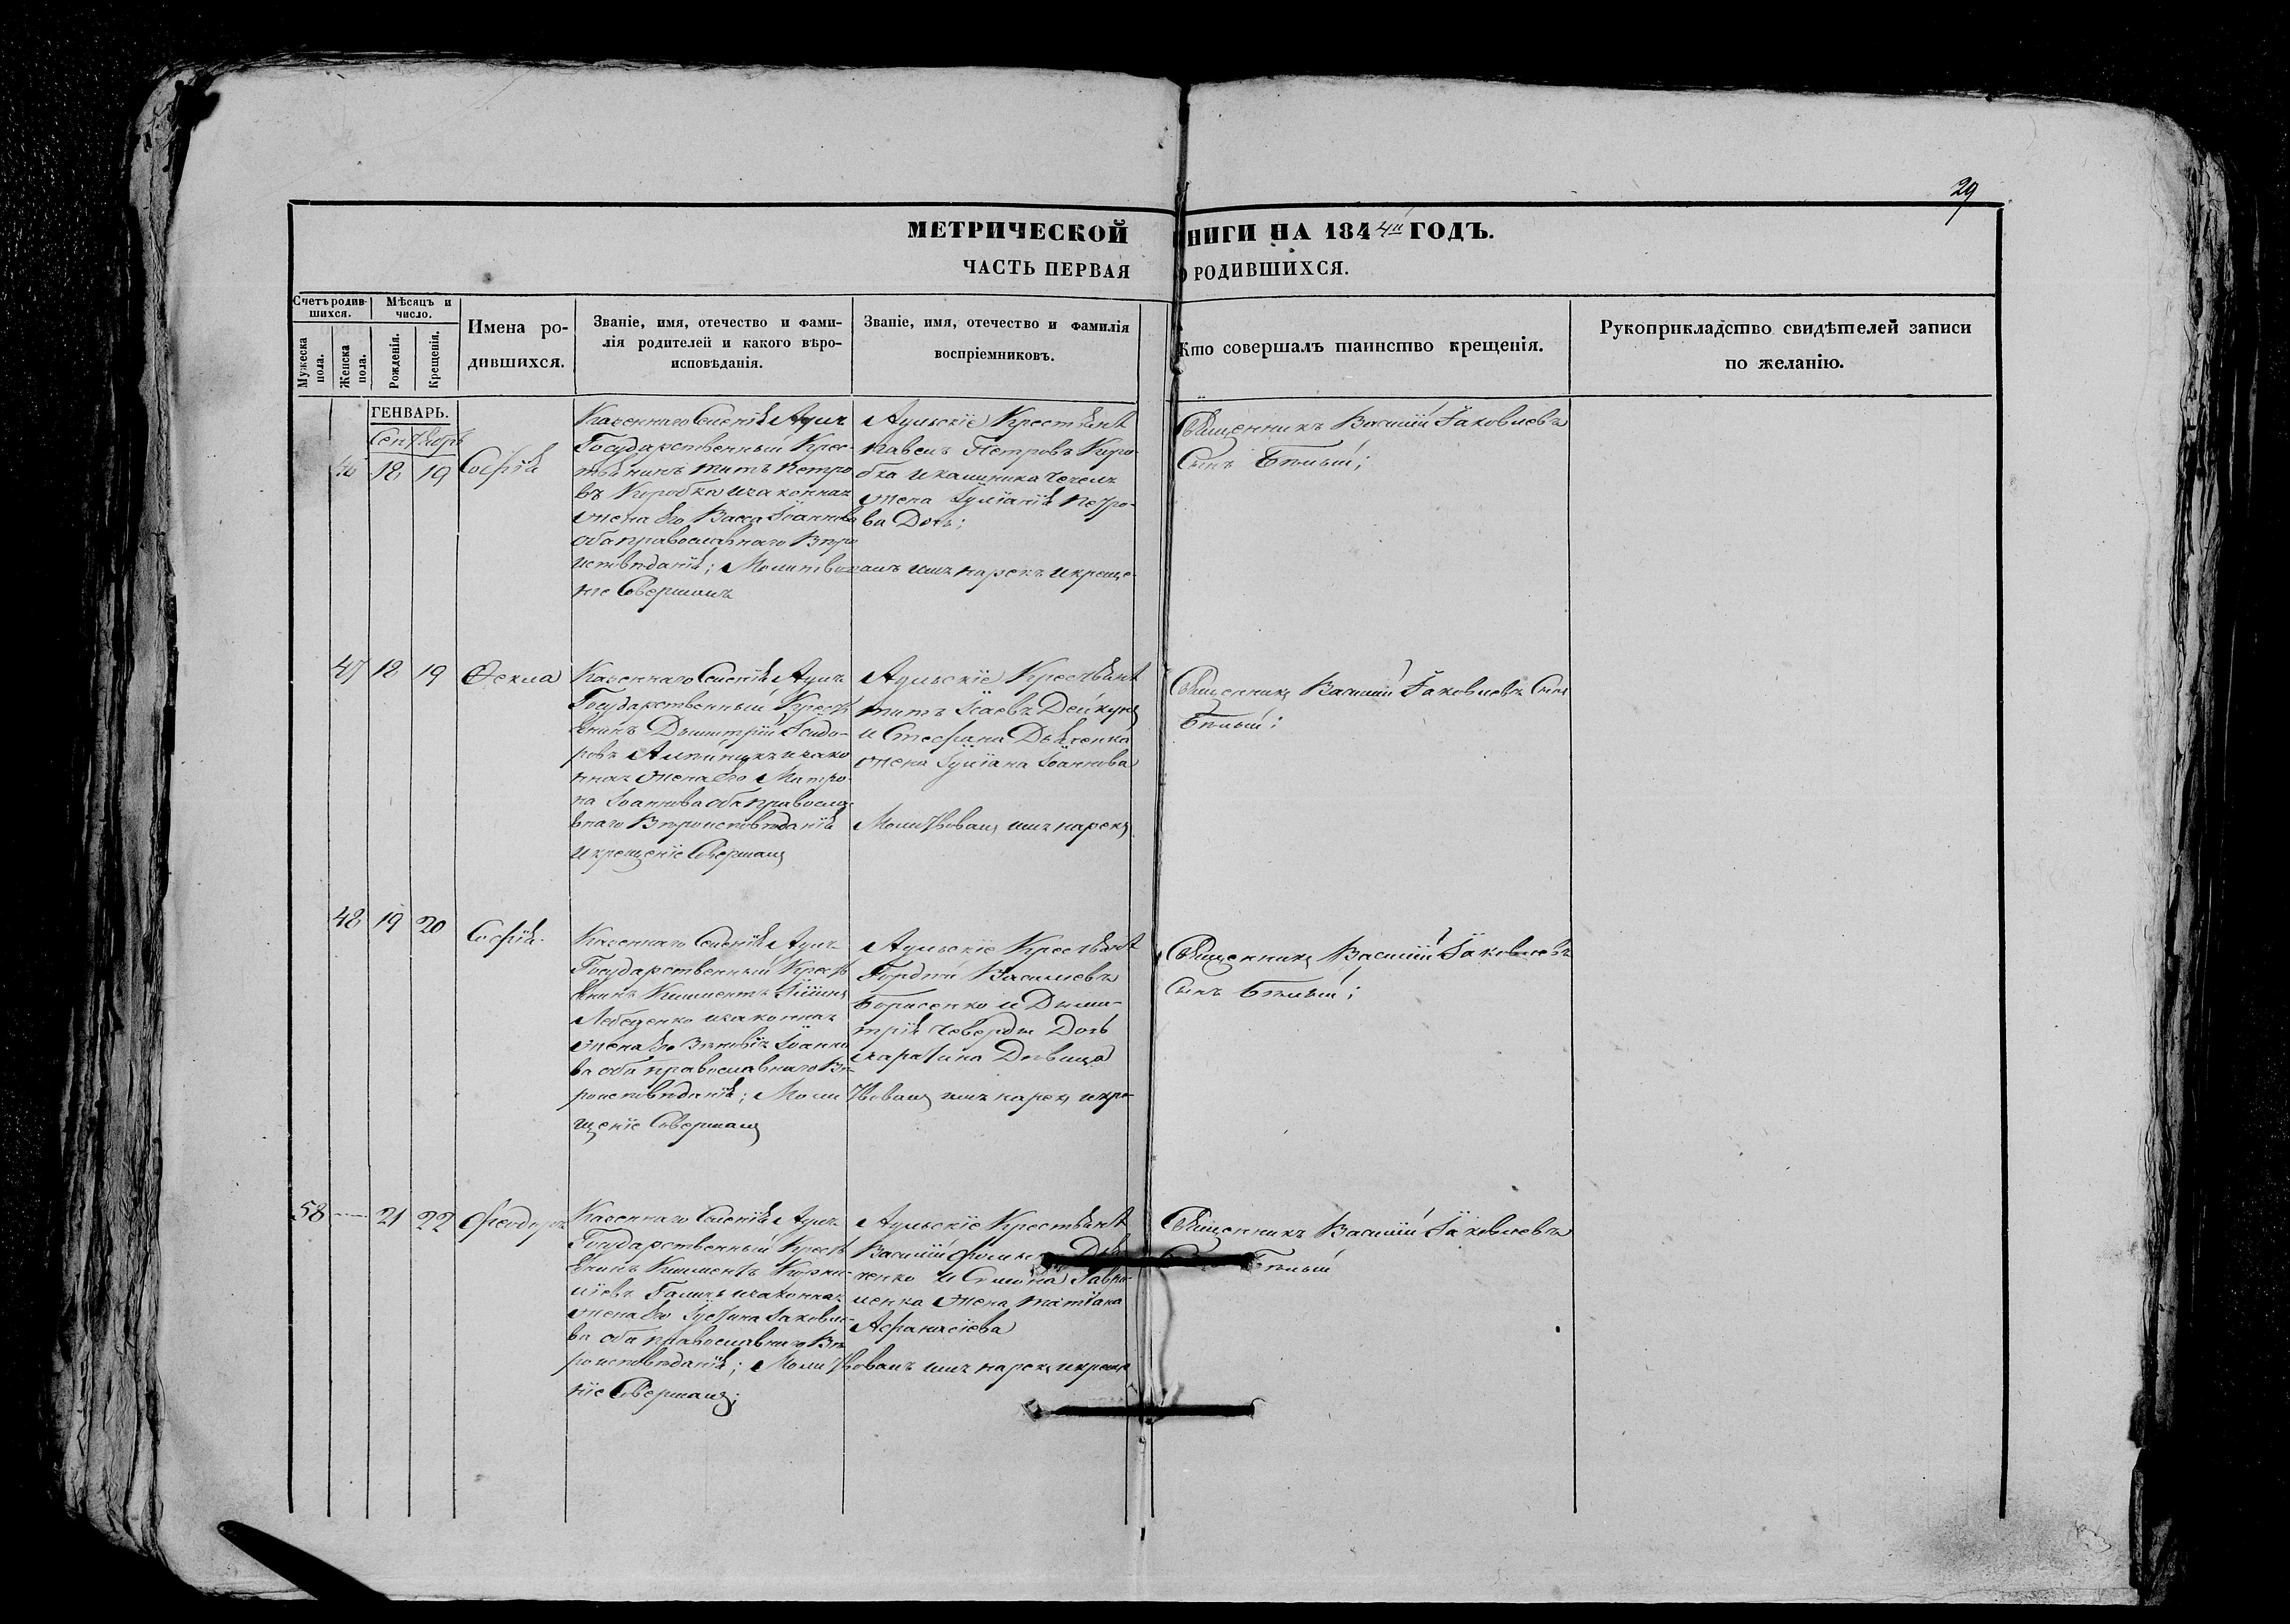 29
МЕТРИЧЕСКОЙ НИГИ НА 1844й ГОДЪ.
ЧАСТЬ ПЕРВАЯ О РОДИВШИХСЯ.
Счетъ родив-
шихся.
Мужеска
пола.
Женска
пола.
Мѣсяцъ и
число.
Рожденія.
Крещенія.
Имена ро-
дившихся.
Званіе, имя, отечество и фами-
лія родителей и какого вѣро-
исповѣданія.
Званіе, имя, отечество и фамилія
воспріемниковъ.
Кто совершалъ таинство крещенія.
Рукоприкладство свидѣтелей записи
по желанію.
ГЕНВАРЬ.
Сентябрь
46 18 19 Софія
Казеннаго Селенія Аулъ
Государственный Крес-
тьянинъ Титъ Петро
въ Коробка и законная
жена его Васса Іоаннова
оба православнаго Вѣро
исповѣданія; Молитвовалъ имя нарекъ и креще-
ніе Совершалъ
Аульскіе Крестьяне
Павелъ Петровъ Коро
бка и
жена Іуліанія Петро-
ва Дочь;
Священникъ Василій Іаковлевъ
Сынъ Бѣлый;
47 18 19 Ѳекла
Казеннаго Селенія Аулъ
Государственный Кресть
янинъ Дъмитрій Ісидо-
ровъ и зако
нная жена его Матро
на Іоаннова оба правосла
внаго Вѣроисповѣданія
и крещеніе Совершалъ
Аульскіе Крестьяне
Титъ Ісаевъ Дейкунъ
и Стефана Дьяченка
жена Іуліана Іоаннова
Молитвовалъ имя нарекъ
Священникъ Василій Іаковлевъ Сынъ
Бѣлый;
48 19 20 Софія
Казеннаго Селенія Аулъ
Государственный Кресть
янинъ Климентъ
Лебеденко и законная
жена его Іоанно
ва оба православнаго Вѣ-
роисповѣданія; Молитвовалъ имя нарекъ и кре-
щеніе Совершалъ
Аульскіе Крестьяне
Гордѣй Василіевъ
Борисенко и Дъми-
трія Дочь
Дѣвица
Священникъ Василій Іаковлевъ
Сынъ Бѣлый;
58 21 22 Ѳеодоръ
Казеннаго Селенія Аулъ
Государственный Кресть
янинъ Климентъ Корни-
ліевъ и законная
жена его Іустина Іаковле-
ва оба православнаго Вѣ
роисповѣданія; Молитвовалъ имя нарекъ и креще
ніе Совершалъ;
Аульскіе Крестьяне
Василій
ченко и Симона Гаври-
ленка жена Татіана
Афанасіева
Священникъ Василій Іаковлевъ
Бѣлый